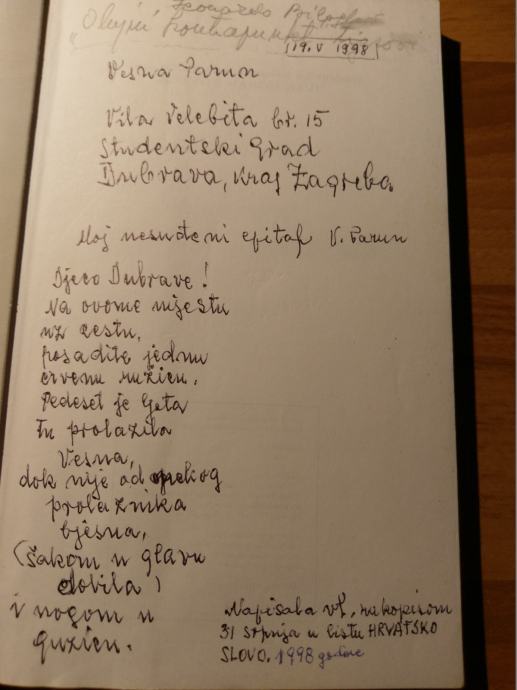 Leonardo
"Olujni kontrapunkt
19. V 1998
Vesna Parun
Vila Velebita br. 15
Studentski Grad
Dubrava, kraj Zagreba
Moj nesuđeni epitaf V. Parun
Djeco Dubrave!
Na ovome mjestu
uz cestu,
posadite jednu
crvenu ružicu.
Pedeset je ljeta
Tu prolazila
Vesna,
dok nije od nekog
prolaznika
bjesna,
(šakom u glavu
dobila)
i nogom u
guzicu.
Napisala vl. rukopisom
31 srpnja u listu HRVATSKO
SLOVO. 1998 godine